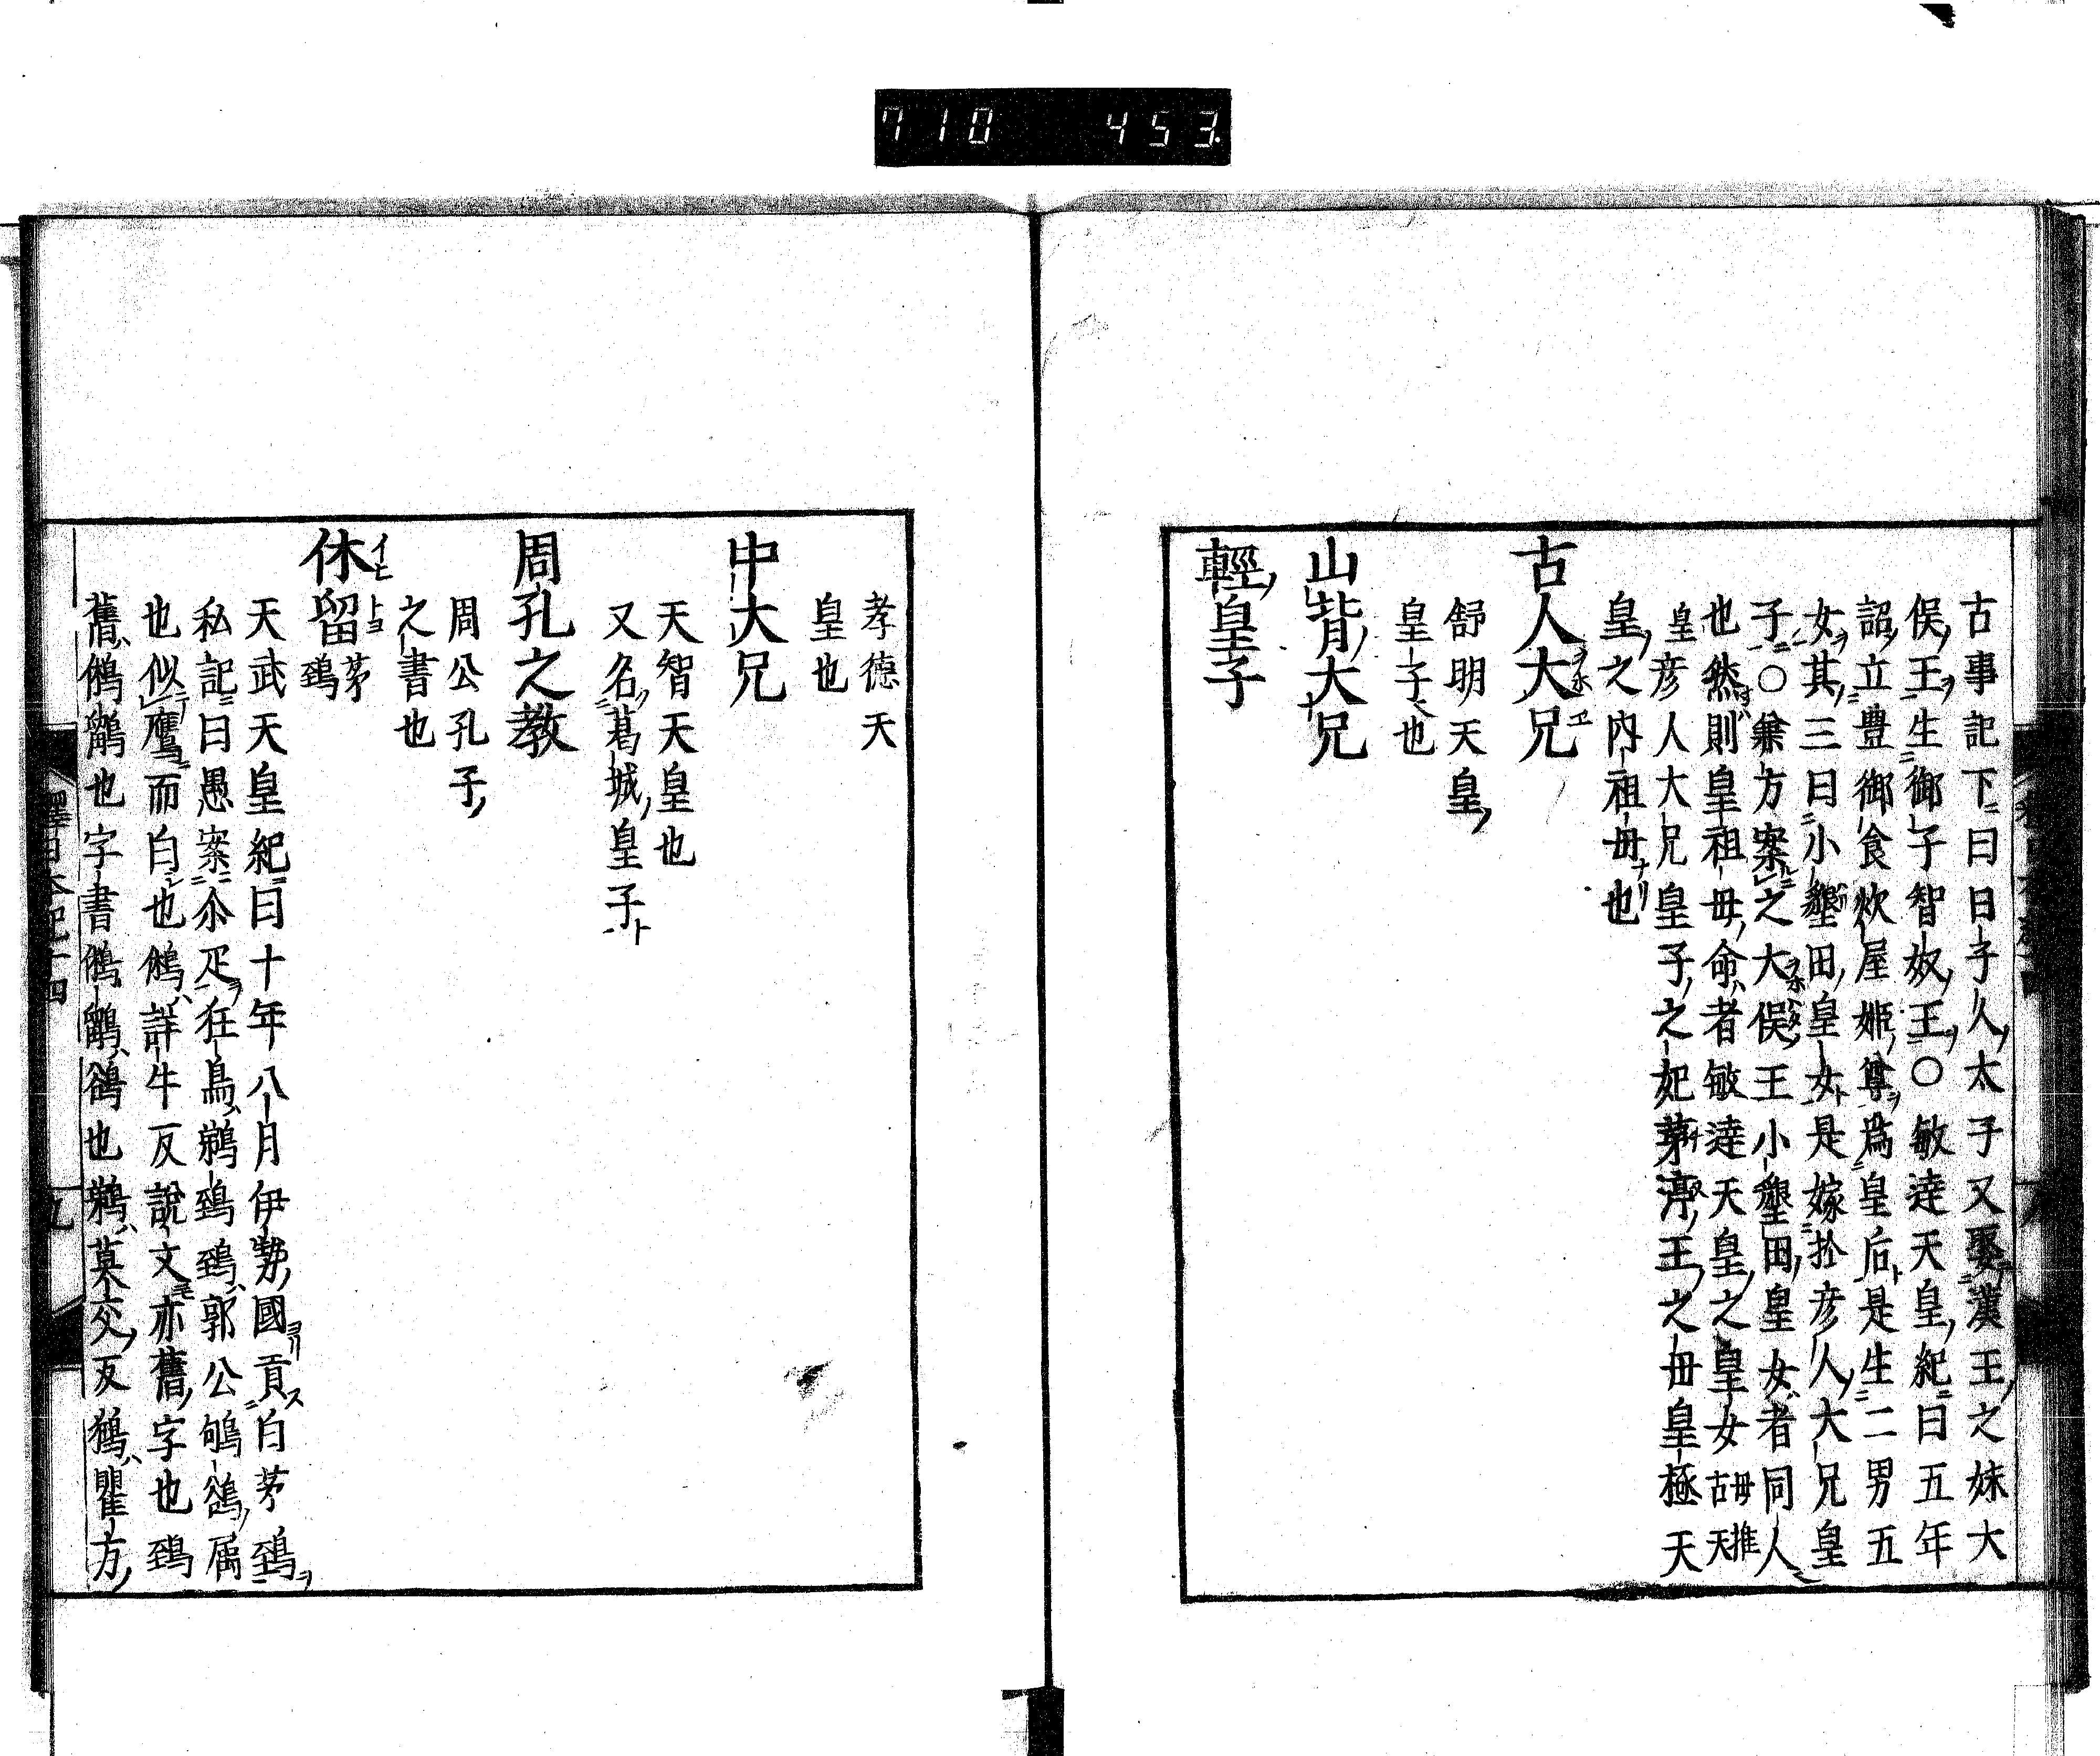 710 453
古事記下曰日子人太子又娶漢王之妹大
俣王生御子智奴王○敏達天皇紀曰五年
詔立豊御食炊屋姫尊為皇后是生二男五
女其三曰小墾田皇女是嫁於彦人大兄皇
子○兼方案之大俣王小墾田皇女者同人
也然則皇祖母命者敏達天皇之皇女母推古天
皇彦人大兄皇子之妃茅渟王之母皇極天
皇之内祖母也
古人大兄
舒明天皇
皇子也
山背大兄
輕皇子
孝德天
皇也
中大兄
天智天皇也
又名葛城皇子
周孔之教
周公孔子
之書也
休留茅鵄
天武天皇紀曰十年八月伊勢國貢白茅鵄
私記曰愚案尒疋狂鳥鵄郭公属
也似鷹而白也詳牛反說文亦舊字也鵄
舊也字書也莫交反瞿方
釋日本紀十四 九